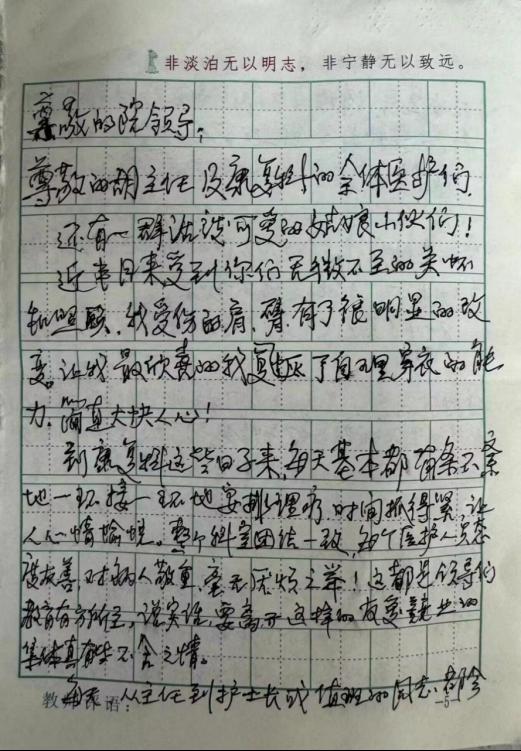 非淡泊无以明志，非宁静无以致远。
尊敬的院领导；
尊敬的胡主任及康复科的全体医护们
还有一群活泼可爱的姑娘小伙们！
近半月来受到你们无微不至的关怀
和照顾，我受伤的肩、臂，有了很明显的改
变。让我最欣喜的我复了自理穿衣的能
力。简直大快人心！
到康复科这些日子来，每天基本都有条不紊
地一环接一环地安排理疗，时间抓得紧，让
人心情愉悦。整个科室团结一致，每个医护人员态
度友善，对病人敬重，毫无厌烦之举！这都是领导们
教育有方所至，说实话，要离开这样的友爱敬业的
集体真有些不舍之情。
每天从主任到护士长或值班的同志，都会
教 语：
5